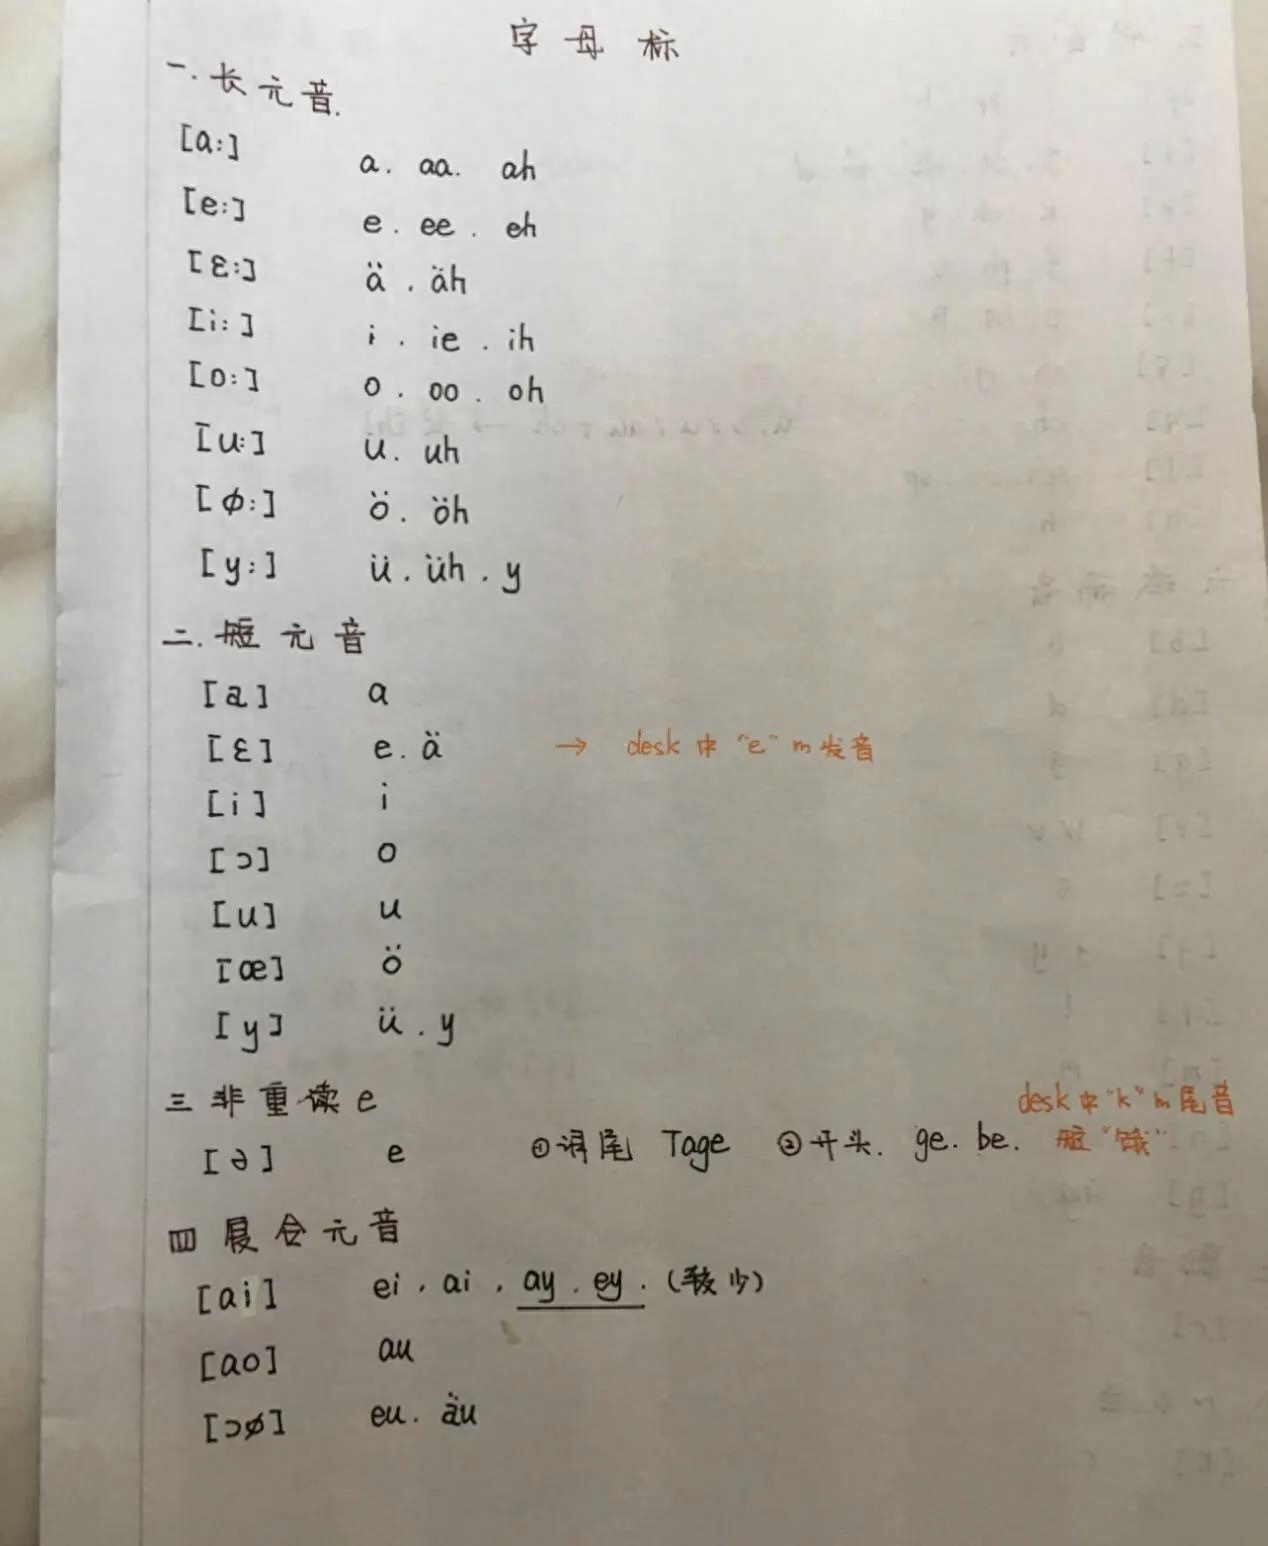 字母标
一.长元音.
[a:] a. aa. ah
[e:] e. ee. eh
[ɛ:] ä. äh
[i:] i. ie. ih
[o:] o. oo. oh
[u:] u. uh
[ø:] ö. öh
[y:] ü. üh. y
二.短元音
[a] a
[ɛ] e. ä → desk中"e"m发音
[i] i
[ɔ] o
[u] u
[œ] ö
[y] ü. y
三 非重读e
desk中"k"m尾音
[ə] e ①词尾 Tage ②开头. ge. be. 短"饿"
四 复合元音
[ai] ei. ai. ay. ey. (较少)
[ao] au
[ɔø] eu. äu